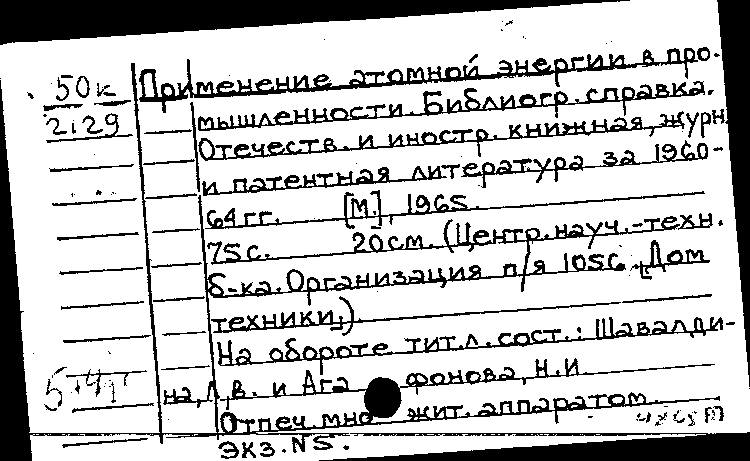 50к Применение атомной энергии в про-
2129 мышленности. Библиогр. справка.
Отечеств. и иностр. книжная, журн.
и патентная литература за 1960-
64 гг. [М.], 1965.
75с. 20см. (Центр. науч.-техн.
б-ка. Организация п/я 1056. „Дом
техники„).
На обороте тит. л. сост.: Шавалди-
на, Л.В. и Агафонова, Н.И
Отпеч. множит. аппаратом.
Экз. N5.